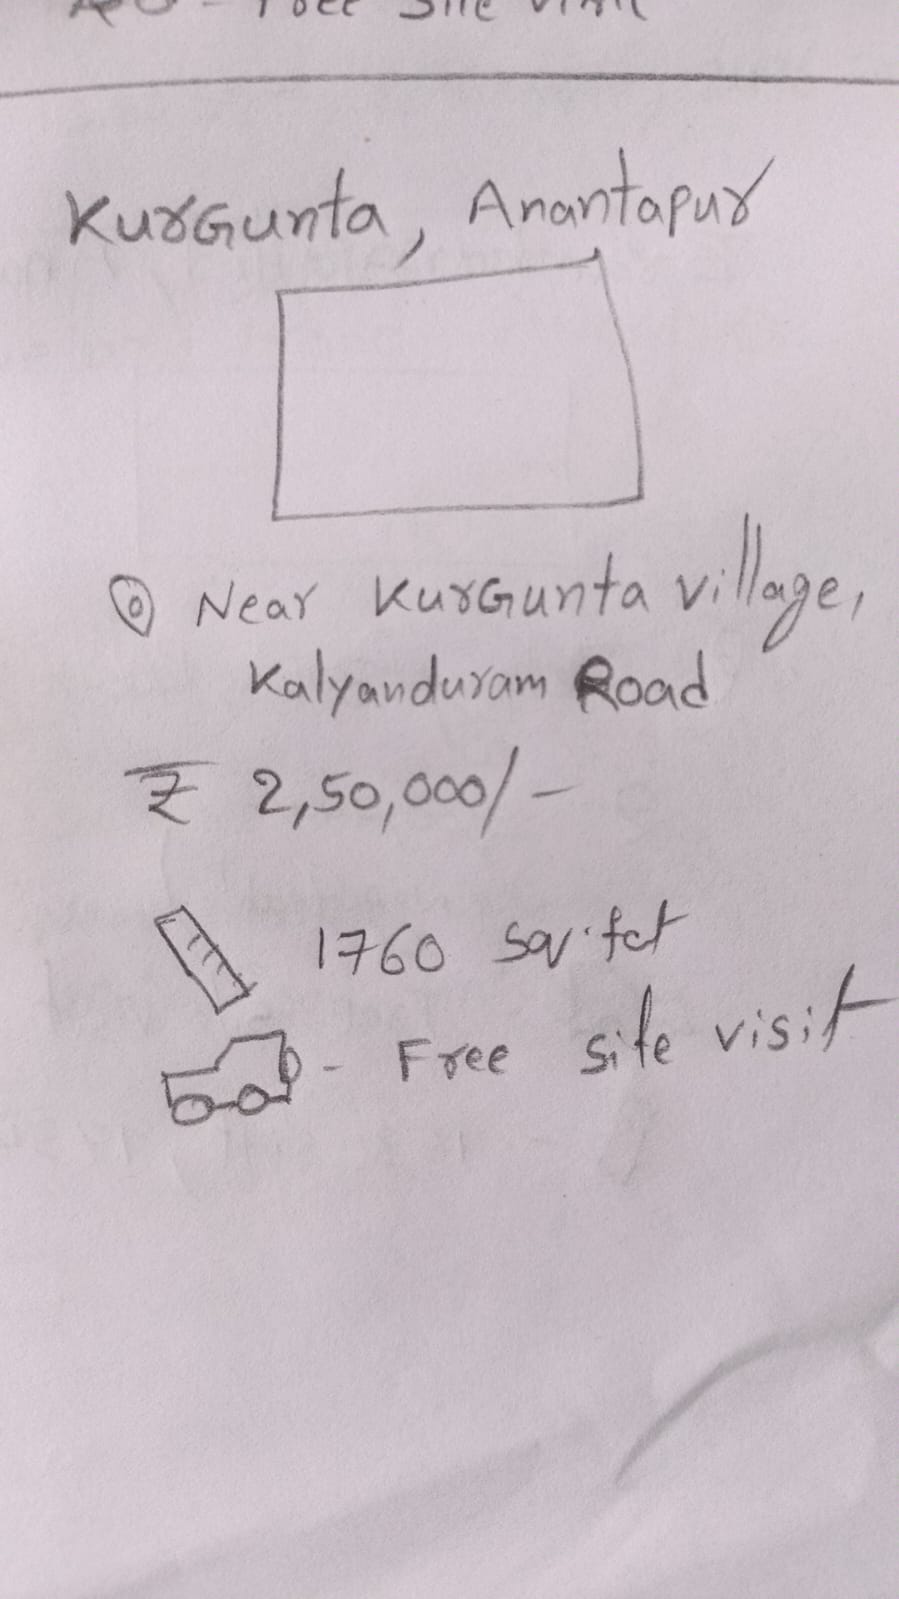 Free Site Visit
KurGunta, Anantapur
Near KurGunta village,
Kalyanduram Road
₹ 2,50,000/-
1760 sq.fet
- Free site visit